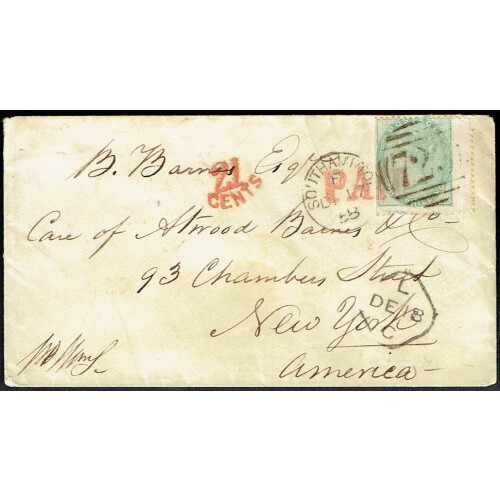 B. Barnes Esqr
21
CENTS
PA
SOUTHAMPTON
DE 17
58
72
Care of Atwood Barnes & Co
93 Chambers Street
New York
America
L
DE 18
C